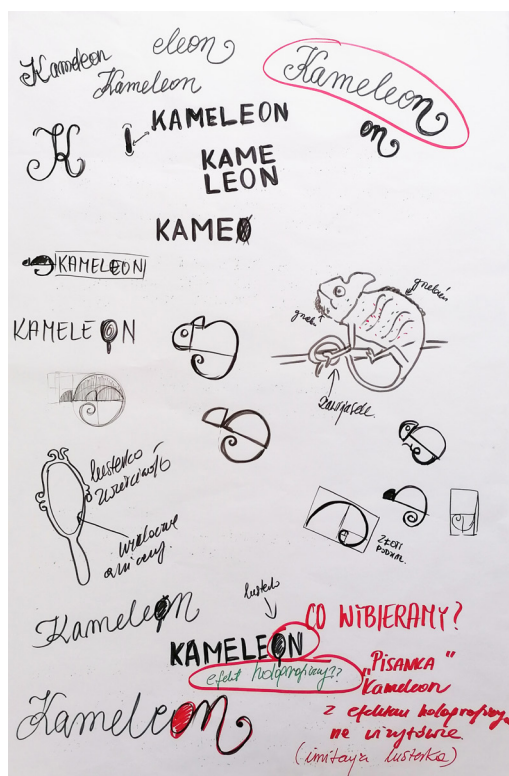 Kameleon
eleon
Kameleon
Kameleon
on
K
KAMELEON
KAME
LEON
KAMEO
KAMELEON
KAMELEON
grzebień
zawijasek
lusterko
ZŁOTY
PODZIAŁ
Kameleon
lusterko
KAMELEON
efekt holograficzny??
CO WYBIERAMY?
„PISANKA"
Kameleon
z efektem holograficznym
na wizytówce
(imitacja lusterka)
Kameleon